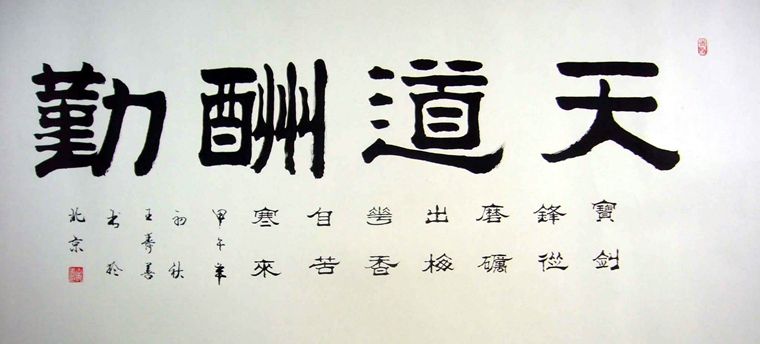 天道酬勤
寶劍
鋒從
磨礪
出梅
華香
自苦
寒來
甲午年
初秋
王壽善
书於
北京